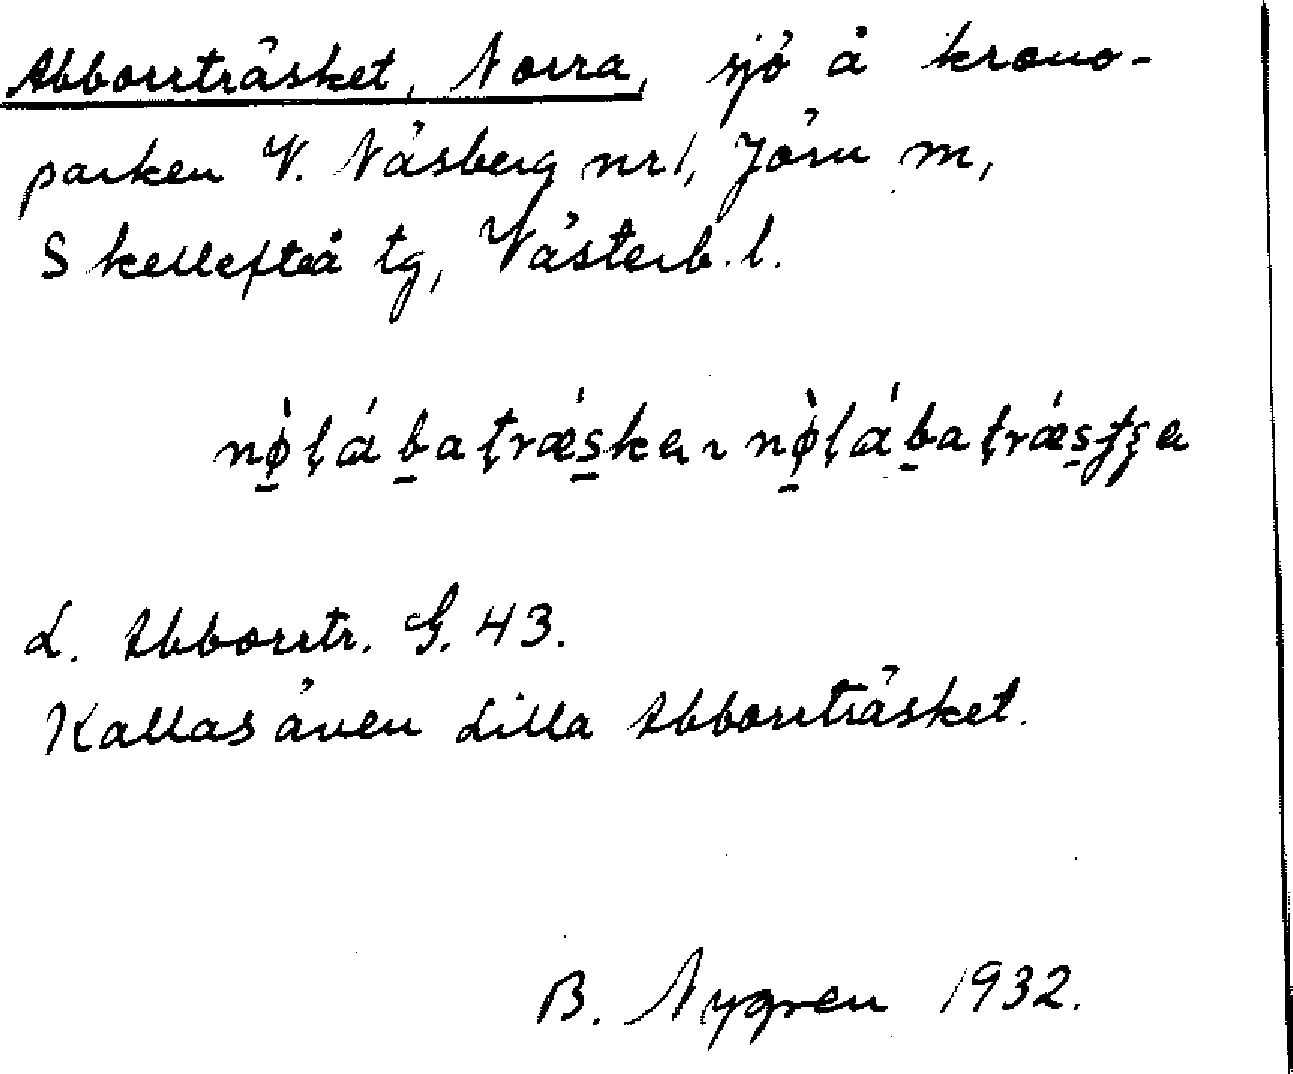 Abborrträsket, Norra, sjö å krono-
parken V. Näsberg nr 1, Jörn m,
Skellefteå tg, Västerb. l.
L. Abborrtr. G. 43.
Kallas även Lilla Abborrträsket.
B. Nygren 1932.